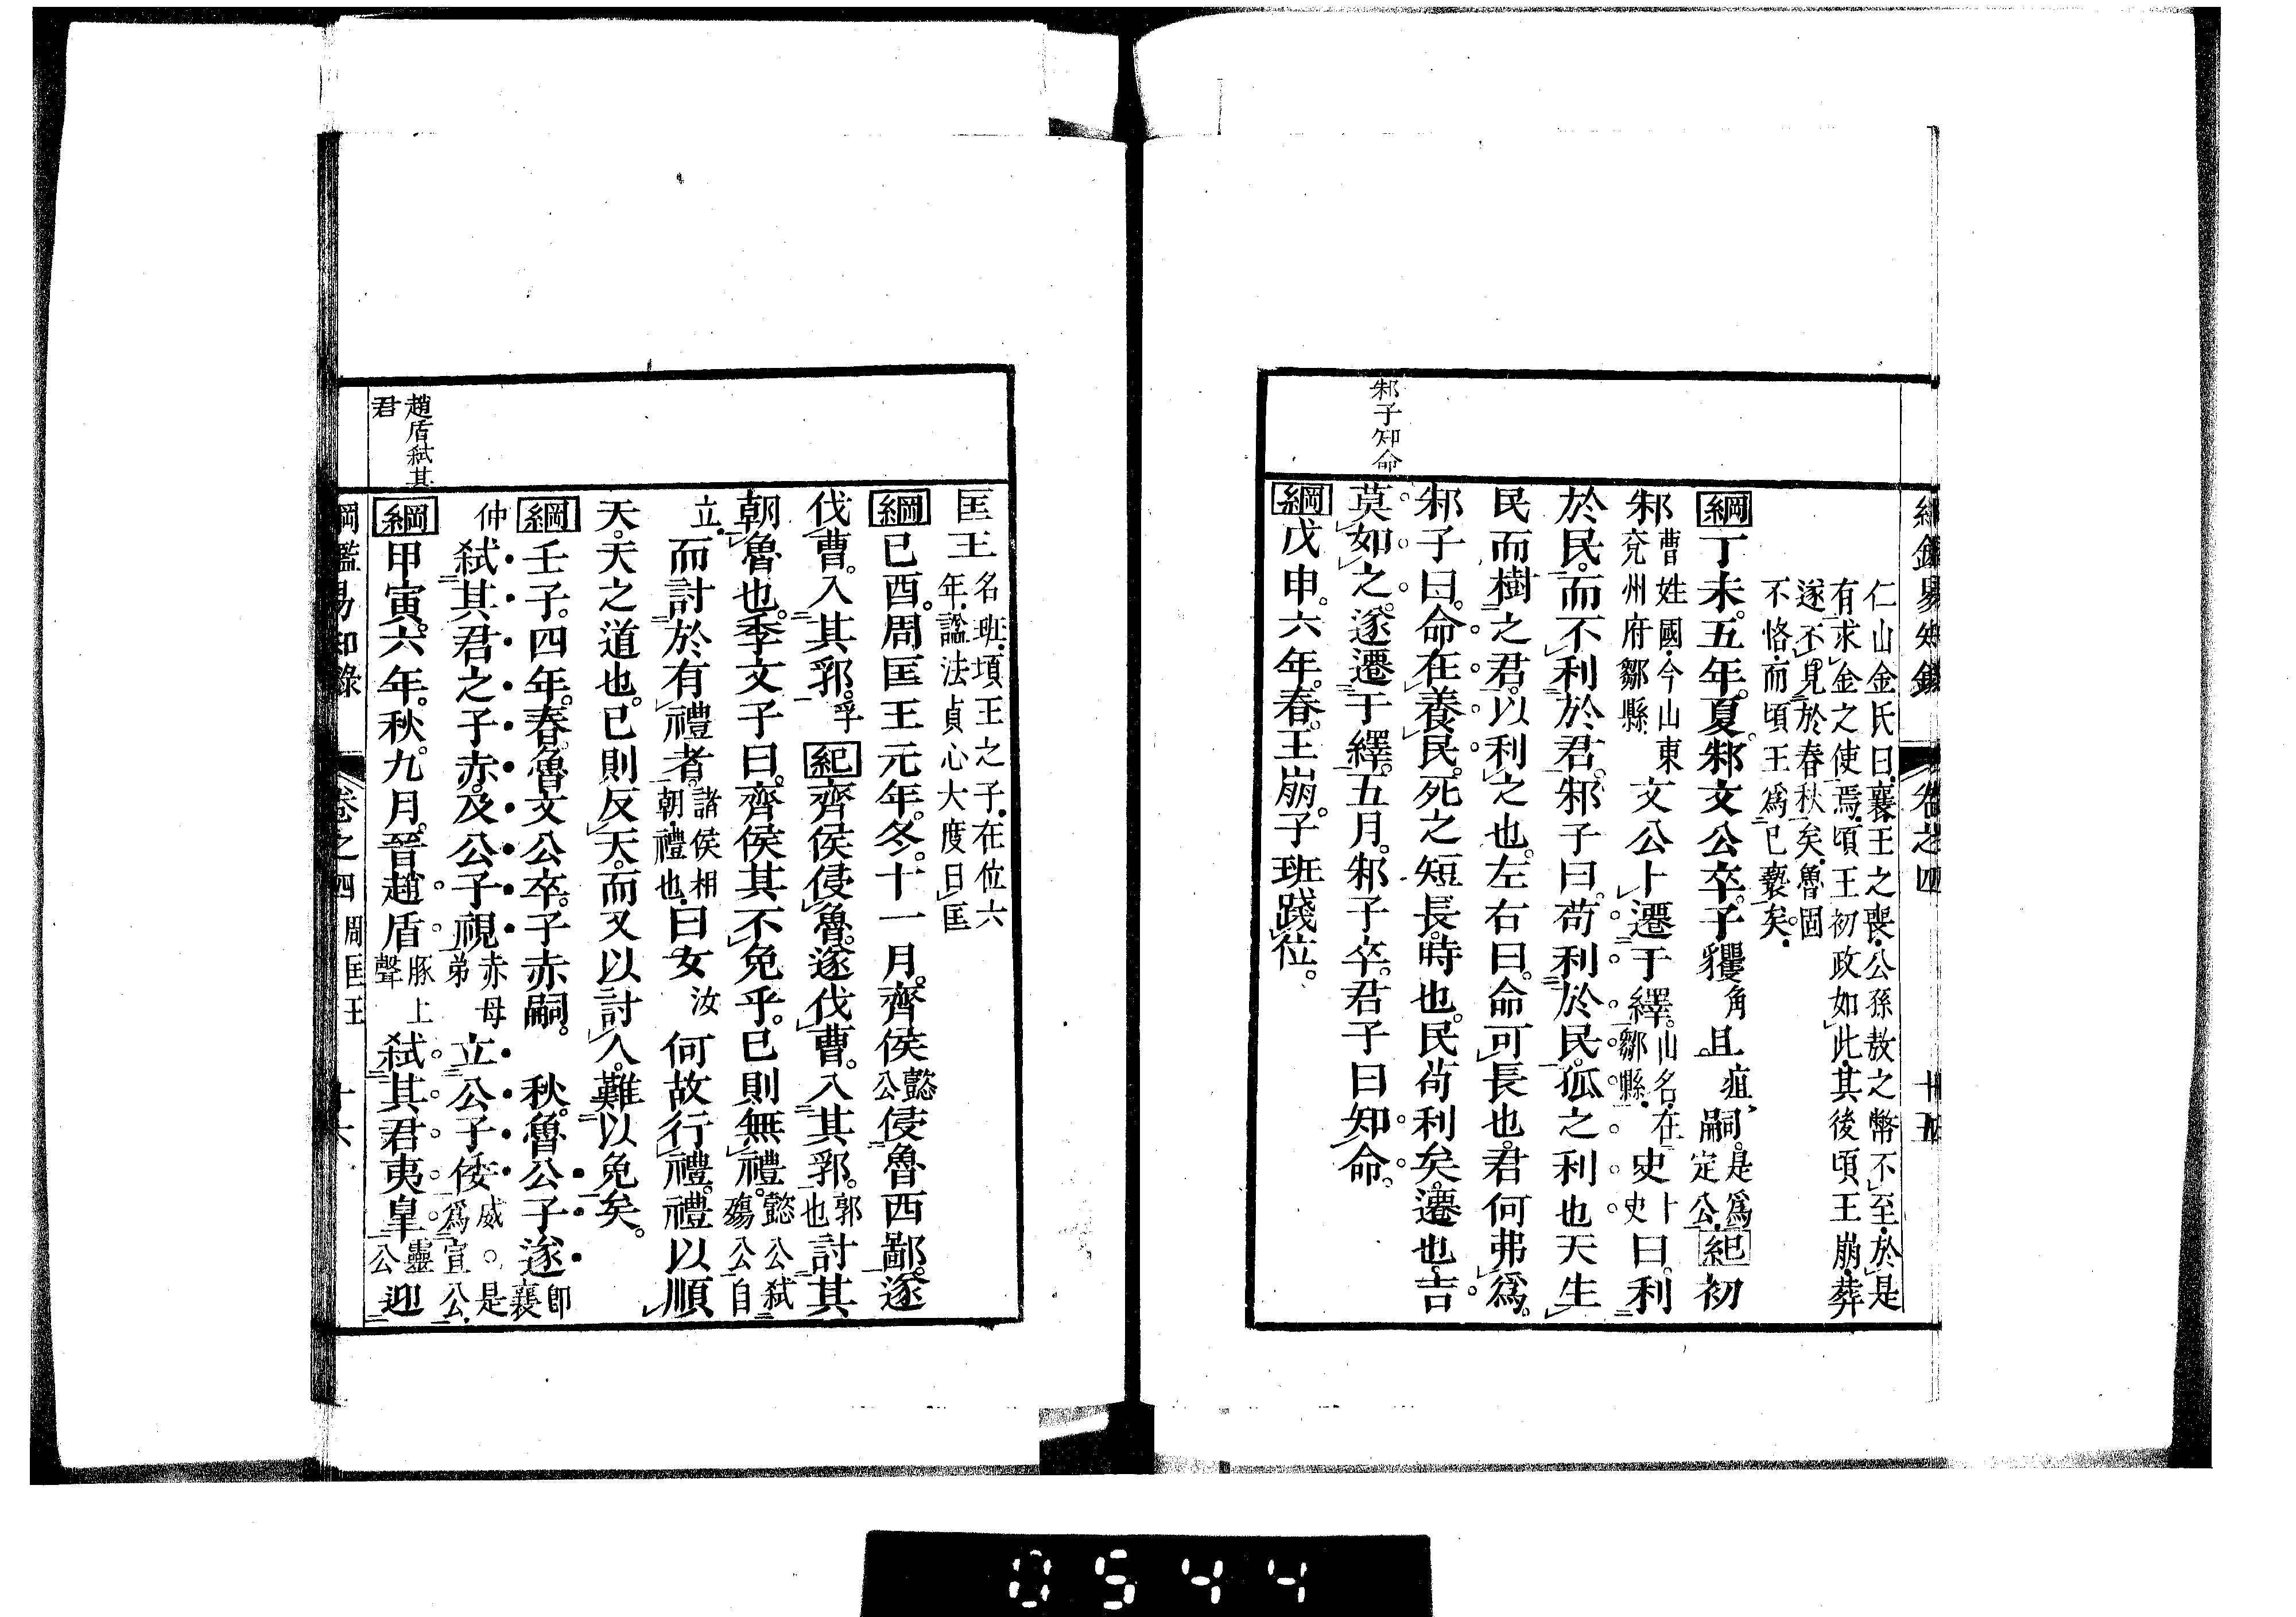 綱鑑易知錄 卷之四 十五
仁山金氏曰襄王之喪公孫敖之幣不至於是
有求金之使焉頃王初政如此其後頃王崩葬
遂不見於春秋矣魯固
不恪而頃王爲已褻矣
綱丁未五年夏邾文公卒子貜角且疽嗣是爲定公紀初
邾曹姓國今山東兗州府鄒縣文公卜遷于繹山名在鄒縣史卜史曰利
於民而不利於君邾子曰苟利於民孤之利也天生
民而樹之君以利之也左右曰命可長也君何弗爲
邾子曰命在養民死之短長時也民苟利矣遷也吉
邾子知命
莫如之遂遷于繹五月邾子卒君子曰知命
綱戊申六年春王崩子班踐位
匡王名班頃王之子在位六年諡法貞心大度曰匡
綱已酉周匡王元年冬十一月齊侯懿公侵魯西鄙遂
伐曹入其郛孚紀齊侯侵魯遂伐曹入其郛郭也討其
朝魯也季文子曰齊侯其不免乎已則無禮懿公弑殤公自
立而討於有禮者諸侯相朝禮也曰女汝何故行禮禮以順
天天之道也已則反天而又以討人難以免矣
綱壬子四年春魯文公卒子赤嗣 秋魯公子遂卽襄
仲弑其君之子赤及公子視赤母弟立公子倭威是爲宣公
趙盾弑其
君
綱甲寅六年秋九月晉趙盾豚上聲弑其君夷皐靈公迎
綱鑑易知錄 卷之四 周匡王 十六
0544